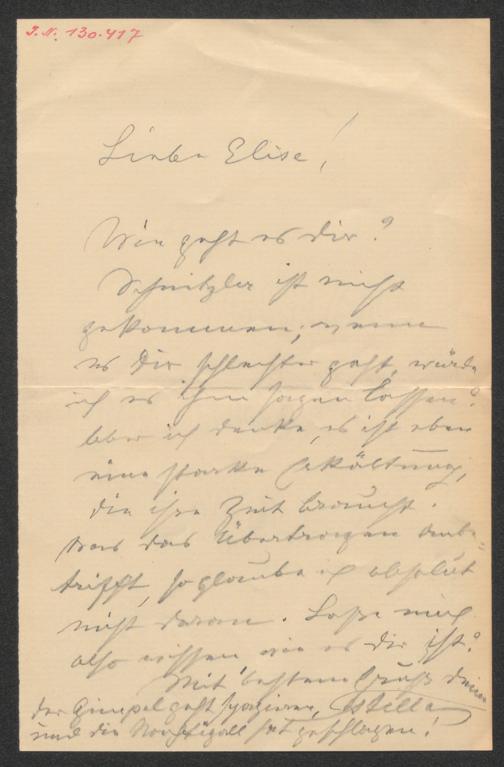 J.N. 130.417
Liebe Elise!
Wie geht es dir?
Schnitzler ist nicht
gekommen; wenn
es dir schlechter geht, würde
ich es ihm sagen lassen?
Aber ich denke, es ist eben
eine starke Erkältung,
die ihre Zeit braucht.
Was das Übertragen anbe=
trifft, so glaube ich absolut
nicht daran. Lasse mich
also wissen wie es dir ist?
Mit bestem Gruß deine
der Gimpel geht spazieren, Stella
und die Nachtigall hat geschlagen!